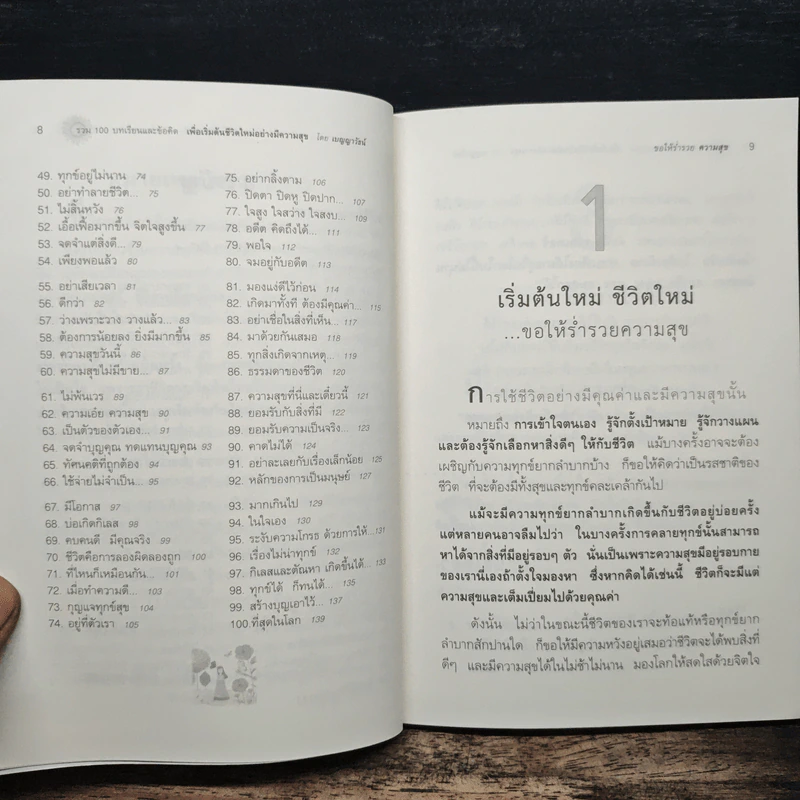 8 รวม 100 บทเรียนและข้อคิด เพื่อเริ่มต้นชีวิตใหม่อย่างมีความสุข โดย เบญญาวัธน์
49. ทุกข์อยู่ไม่นาน 74
50. อย่าทำลายชีวิต... 75
51. ไม่สิ้นหวัง 76
52. เอื้อเฟื้อมากขึ้น จิตใจสูงขึ้น 77
53. จดจำแต่สิ่งดี... 79
54. เพียงพอแล้ว 80
55. อย่าเสียเวลา 81
56. ดีกว่า 82
57. ว่างเพราะวาง วางแล้ว... 83
58. ต้องการน้อยลง ยิ่งมีมากขึ้น 85
59. ความสุขวันนี้ 86
60. ความสุขไม่มีขาย... 87
61. ไม่พ้นเวร 89
62. ความเอ๋ย ความสุข 90
63. เป็นตัวของตัวเอง... 91
64. จดจำบุญคุณ ทดแทนบุญคุณ 93
65. ทัศนคติที่ถูกต้อง 94
66. ใช้จ่ายไม่จำเป็น... 95
67. มีโอกาส 97
68. บ่อเกิดกิเลส 98
69. คบคนดี มีคุณจริง 99
70. ชีวิตคือการลองผิดลองถูก 100
71. ที่ไหนก็เหมือนกัน... 101
72. เมื่อทำความดี... 103
73. กุญแจทุกข์สุข 104
74. อยู่ที่ตัวเรา 105
75. อย่ากลิ้งตาม 106
76. ปิดตา ปิดหู ปิดปาก... 107
77. ใจสูง ใจสว่าง ใจสงบ... 109
78. อดีต คิดถึงได้... 111
79. พอใจ 112
80. จมอยู่กับอดีต 113
81. มองแง่ดีไว้ก่อน 114
82. เกิดมาทั้งที ต้องมีคุณค่า... 115
83. อย่าเชื่อในสิ่งที่เห็น... 117
84. มาด้วยกันเสมอ 118
85. ทุกสิ่งเกิดจากเหตุ... 119
86. ธรรมดาของชีวิต 120
87. ความสุขที่นี่และเดี๋ยวนี้ 121
88. ยอมรับกับสิ่งที่มี 122
89. ยอมรับความเป็นจริง... 123
90. คาดไม่ได้ 124
91. อย่าละเลยกับเรื่องเล็กน้อย 125
92. หลักของการเป็นมนุษย์ 127
93. มากเกินไป 129
94. ในใจเอง 130
95. ระงับความโกรธ ด้วยการให้... 131
96. เรื่องไม่น่าทุกข์ 132
97. กิเลสและตัณหา เกิดขึ้นได้... 133
98. ทุกข์ได้ ก็ทนได้... 135
99. สร้างบุญเอาไว้... 137
100. ที่สุดในโลก 139
ขอให้ร่ำรวย ความสุข 9
1
เริ่มต้นใหม่ ชีวิตใหม่
...ขอให้ร่ำรวยความสุข
การใช้ชีวิตอย่างมีคุณค่าและมีความสุขนั้น
หมายถึง การเข้าใจตนเอง รู้จักตั้งเป้าหมาย รู้จักวางแผน
และต้องรู้จักเลือกหาสิ่งดีๆ ให้กับชีวิต แม้บางครั้งอาจจะต้อง
เผชิญกับความทุกข์ยากลำบากบ้าง ก็ขอให้คิดว่าเป็นรสชาติของ
ชีวิต ที่จะต้องมีทั้งสุขและทุกข์คละเคล้ากันไป
แม้จะมีความทุกข์ยากลำบากเกิดขึ้นกับชีวิตอยู่บ่อยครั้ง
แต่หลายคนอาจลืมไปว่า ในบางครั้งการคลายทุกข์นั้นสามารถ
หาได้จากสิ่งที่มีอยู่รอบๆ ตัว นั่นเป็นเพราะความสุขมีอยู่รอบกาย
ของเรานี่เองถ้าตั้งใจมองหา ซึ่งหากคิดได้เช่นนี้ ชีวิตก็จะมีแต่
ความสุขและเต็มเปี่ยมไปด้วยคุณค่า
ดังนั้น ไม่ว่าในขณะนี้ชีวิตของเราจะท้อแท้หรือทุกข์ยาก
ลำบากสักปานใด ก็ขอให้มีความหวังอยู่เสมอว่าชีวิตจะได้พบสิ่งที่
ดีๆ และมีความสุขได้ในไม่ช้าไม่นาน มองโลกให้สดใสด้วยจิตใจ